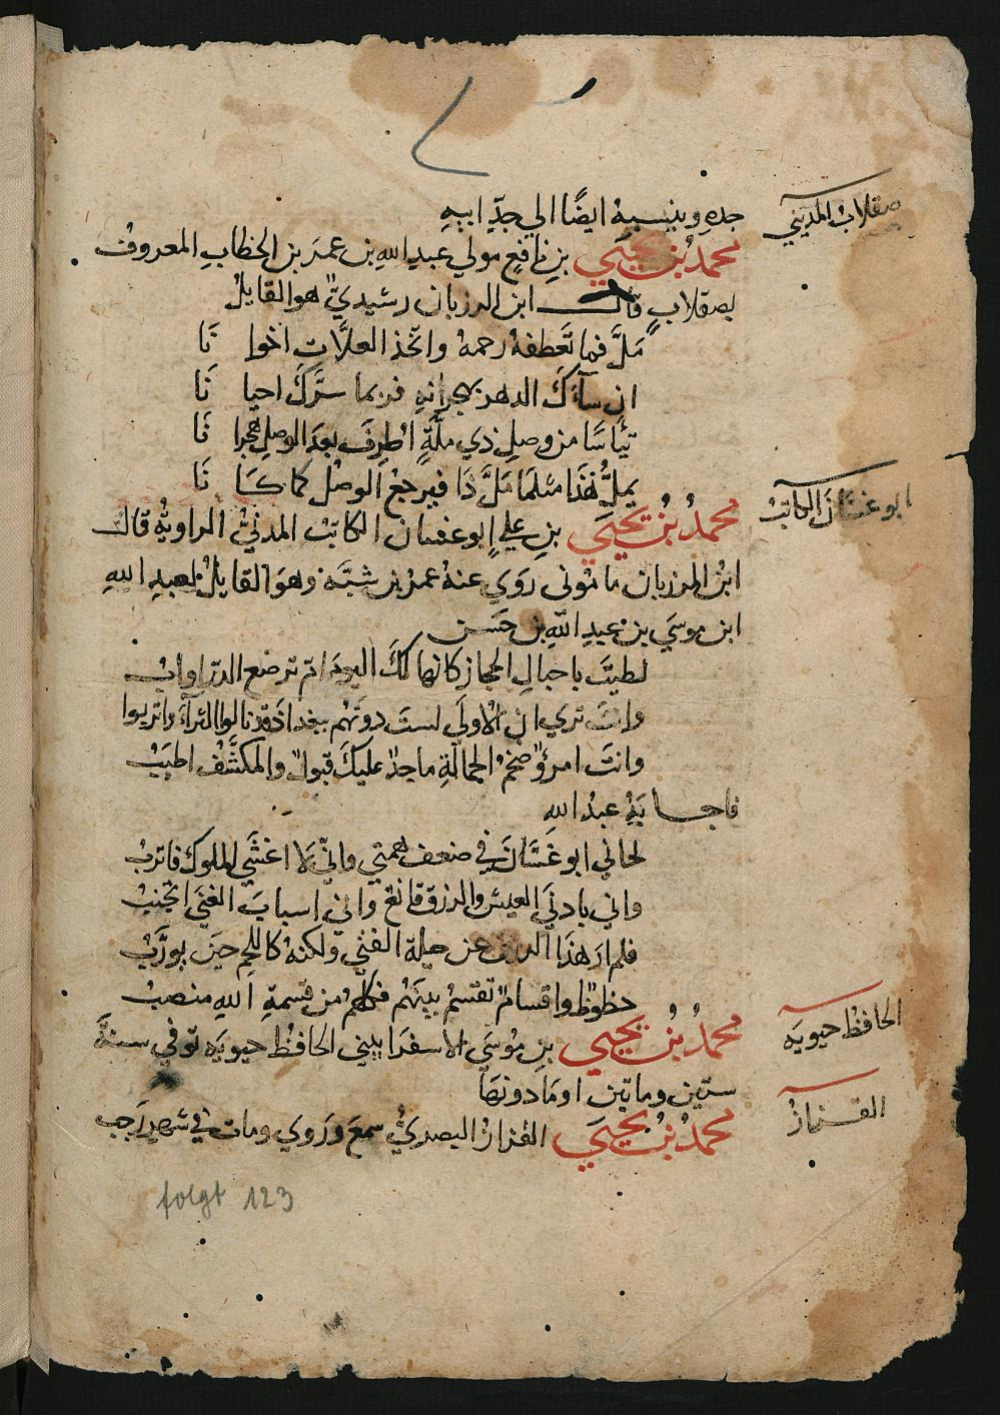 صقلاب المديني
جده وينسبه ايضًا الي جدّ ابيه
محمدُ بْنُ يحيَي بنِ نافعٍ مولي عبدِ اللهِ بن عمرَ بن الخطابِ المعروفُ
بصقلابٍ قال ابن المرزبان رشيديٌّ هوالقايلُ
مَلَّ فما تَعطفهُ رحمهُ واتخذ العلاَّتِ اخوا نَا
ان سآءَكَ الدهر بهجرانهِ فربما سرَّكَ احيا نَا
تيأسًا من وصلِ ذي ملَّةٍ اطرفَ بعدَ الوصلِ هجرا نَا
يملُّ هذَا مثلمَا مَلَّ ذَا فيرجعُ الوصْل كما كَا نَا
ابو غسَّانَ الكاتبُ
محمدُ بْنُ يحيَي بنِ عليٍ ابوغسان الكاتبُ المدنيُّ الراويةُ قال
ابنُ المرزبان مامونى رَوَي عنهُ عمرُ بن شبَّة وهوَ القايلُ لعبدِ اللهِ
ابن موسَي بن عبدِ اللهِ بن حَسن
لطيتَ باجبالِ الحجاز كانها لكَ اليومَ امٌّ ترضع الدرَّ او ابُ
وانتَ تري ان الاولَي لستَ دونَهُم ببغداذ قد نالوا الثرآءَ واتربوا
وانتَ امرؤٌ ضخمُ الجمالةِ ماجدٌ عليكَ قبولٌ والمكشَّف اطيَبُ
فاجابهُ عبدُ اللهِ
لحاني ابوغَسَّانَ في ضعف همتي وانّي لَا اغشَي الملوك فاتربُ
واني بادنَي العيش والرزق قانعٌ واني اسبابَ الغنَي اتجنبُ
فلم ارَ هذَا الرزق عن حيلة الفتَي ولكنهُ كاللحمِ حينَ يورَّبُ
حظوظٌ واقسامٌ تقسمُ بينَهُم فكلهُم من قسمةِ اللهِ منصبُ
الحافظُ حيويَه
محمدُ بْنُ يحيَي بنِ موسَي الاسفرَاييني الحافظُ حيويَه توفي سنةَ
ستين وماتين اومَا دونهَا
القزازُ
محمدُ بْنُ يحيَي القزازُ البصريُّ سمعَ ورَوي ومات في شهر رَجب
folgt 123